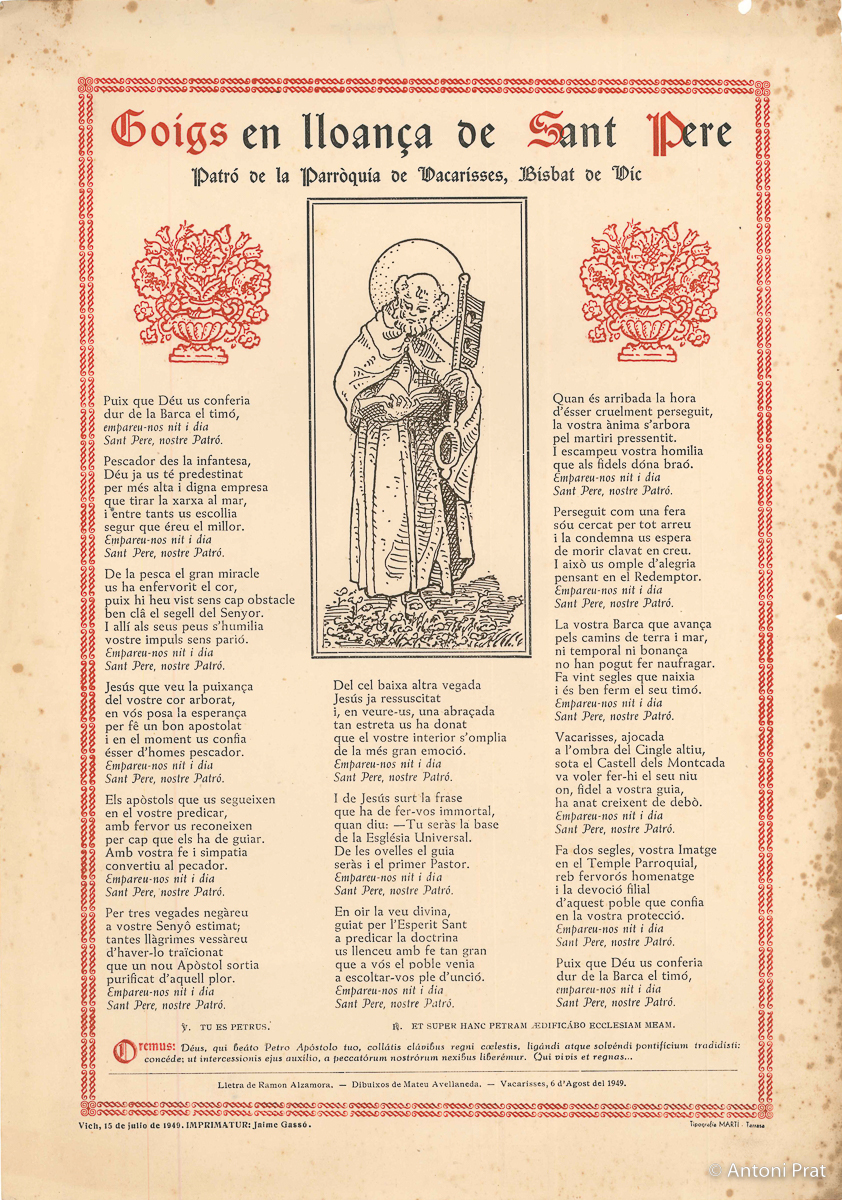 Goigs en lloança de Sant Pere
Patró de la Parròquia de Vacarisses, Bisbat de Vic
Puix que Déu us conferia
dur de la Barca el timó,
empareu-nos nit i dia
Sant Pere, nostre Patró.
Pescador des la infantesa,
Déu ja us té predestinat
per més alta i digna empresa
que tirar la xarxa al mar,
i entre tants us escollia
segur que éreu el millor.
Empareu-nos nit i dia
Sant Pere, nostre Patró.
De la pesca el gran miracle
us ha enfervorit el cor,
puix hi heu vist sens cap obstacle
ben clâ el segell del Senyor.
I allí als seus peus s'humilia
vostre impuls sens parió.
Empareu-nos nit i dia
Sant Pere, nostre Patró.
Jesús que veu la puixança
del vostre cor arborat,
en vós posa la esperança
per fê un bon apostolat
i en el moment us confia
ésser d'homes pescador.
Empareu-nos nit i dia
Sant Pere, nostre Patró.
Els apòstols que us segueixen
en el vostre predicar,
amb fervor us reconeixen
per cap que els ha de guiar.
Amb vostra fe i simpatia
convertiu al pecador.
Empareu-nos nit i dia
Sant Pere, nostre Patró.
Per tres vegades negàreu
a vostre Senyô estimat;
tantes llàgrimes vessàreu
d'haver-lo traïcionat
que un nou Apòstol sortia
purificat d'aquell plor.
Empareu-nos nit i dia
Sant Pere, nostre Patró.
Del cel baixa altra vegada
Jesús ja ressuscitat
i, en veure-us, una abraçada
tan estreta us ha donat
que el vostre interior s'omplia
de la més gran emoció.
Empareu-nos nit i dia
Sant Pere, nostre Patró.
I de Jesús surt la frase
que ha de fer-vos immortal,
quan diu: —Tu seràs la base
de la Església Universal.
De les ovelles el guia
seràs i el primer Pastor.
Empareu-nos nit i dia
Sant Pere, nostre Patró.
En oir la veu divina,
guiat per l'Esperit Sant
a predicar la doctrina
us llenceu amb fe tan gran
que a vós el poble venia
a escoltar-vos ple d'unció.
Empareu-nos nit i dia
Sant Pere, nostre Patró.
Quan és arribada la hora
d'ésser cruelment perseguit,
la vostra ànima s'arbora
pel martiri pressentit.
I escampeu vostra homilia
que als fidels dóna braó.
Empareu-nos nit i dia
Sant Pere, nostre Patró.
Perseguit com una fera
sóu cercat per tot arreu
i la condemna us espera
de morir clavat en creu.
I això us omple d'alegria
pensant en el Redemptor.
Empareu-nos nit i dia
Sant Pere, nostre Patró.
La vostra Barca que avança
pels camins de terra i mar,
ni temporal ni bonança
no han pogut fer naufragar.
Fa vint segles que naixia
i és ben ferm el seu timó.
Empareu-nos nit i dia
Sant Pere, nostre Patró.
Vacarisses, ajocada
a l'ombra del Cingle altiu,
sota el Castell dels Montcada
va voler fer-hi el seu niu
on, fidel a vostra guia,
ha anat creixent de debò.
Empareu-nos nit i dia
Sant Pere, nostre Patró.
Fa dos segles, vostra Imatge
en el Temple Parroquial,
reb fervorós homenatge
i la devoció filial
d'aquest poble que confia
en la vostra protecció.
Empareu-nos nit i dia
Sant Pere, nostre Patró.
Puix que Déu us conferia
dur de la Barca el timó,
empareu-nos nit i dia
Sant Pere, nostre Patró.
℣. TU ES PETRUS. ℟. ET SUPER HANC PETRAM ÆDIFICÁBO ECCLESIAM MEAM.
Oremus: Déus, qui beáto Petro Apóstolo tuo, collátis clávibus regni cœlestis, ligándi atque solvéndi pontifícium tradidisti:
concéde; ut intercessionis ejus auxilio, a peccatórum nostrórum nexibus liberémur. Qui vivis et regnas...
Lletra de Ramon Alzamora. — Dibuixos de Mateu Avellaneda. — Vacarisses, 6 d'Agost del 1949.
Vich, 15 de julio de 1949. IMPRIMATUR: Jaime Gassó.
Tipografia MARTÍ - Terrassa
© Antoni Prat